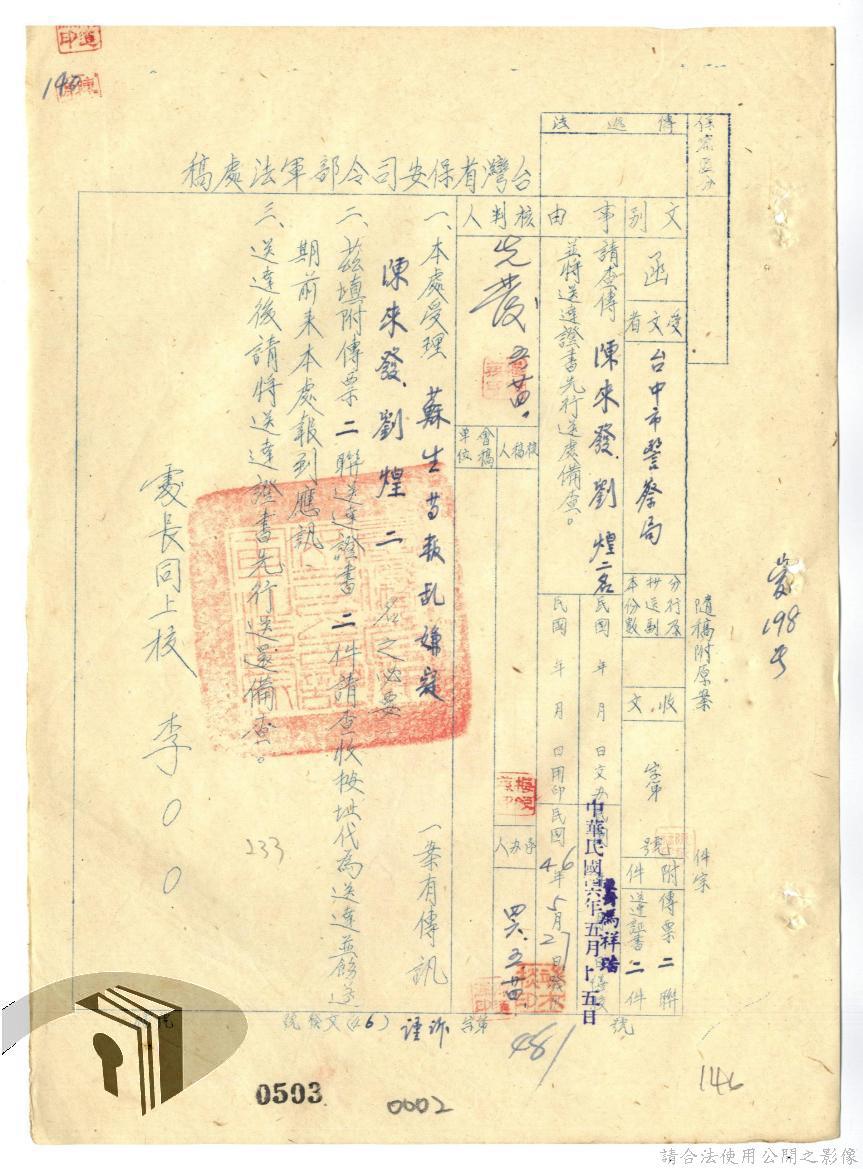 保密區分
傳遞法
台灣省保安司令部軍法處稿
文別
函
受文者
台中市警察局
事由
請查傳 陳來發、劉煌 二名
並將送達證書先行送處備查。
核判人
先發 五廿四.
會稿單位
核稿人
承辦人
四六.五廿四
分行及抄送副本份數
收文
字第
號
附件
傳票二聯
送達証書二件
隨稿附原案
件宗
民國 年 月 日
民國 年 月 日用印
民國46年5月27日
中華民國四六年五月廿五日
馮祥瑎
一、本處受理 蘇生等叛乱嫌疑 一案有傳訊
陳來發、劉煌 二 名之必要
二、茲填附傳票二聯送達證書二件請查收按址代為送達並飭遵
期前來本處報到應訊、
三、送達後請將送達證書先行送還備查。
處長同上校 李○○
(46)文發號
481
198号
233
0503
0002
146
請合法使用公開之影像